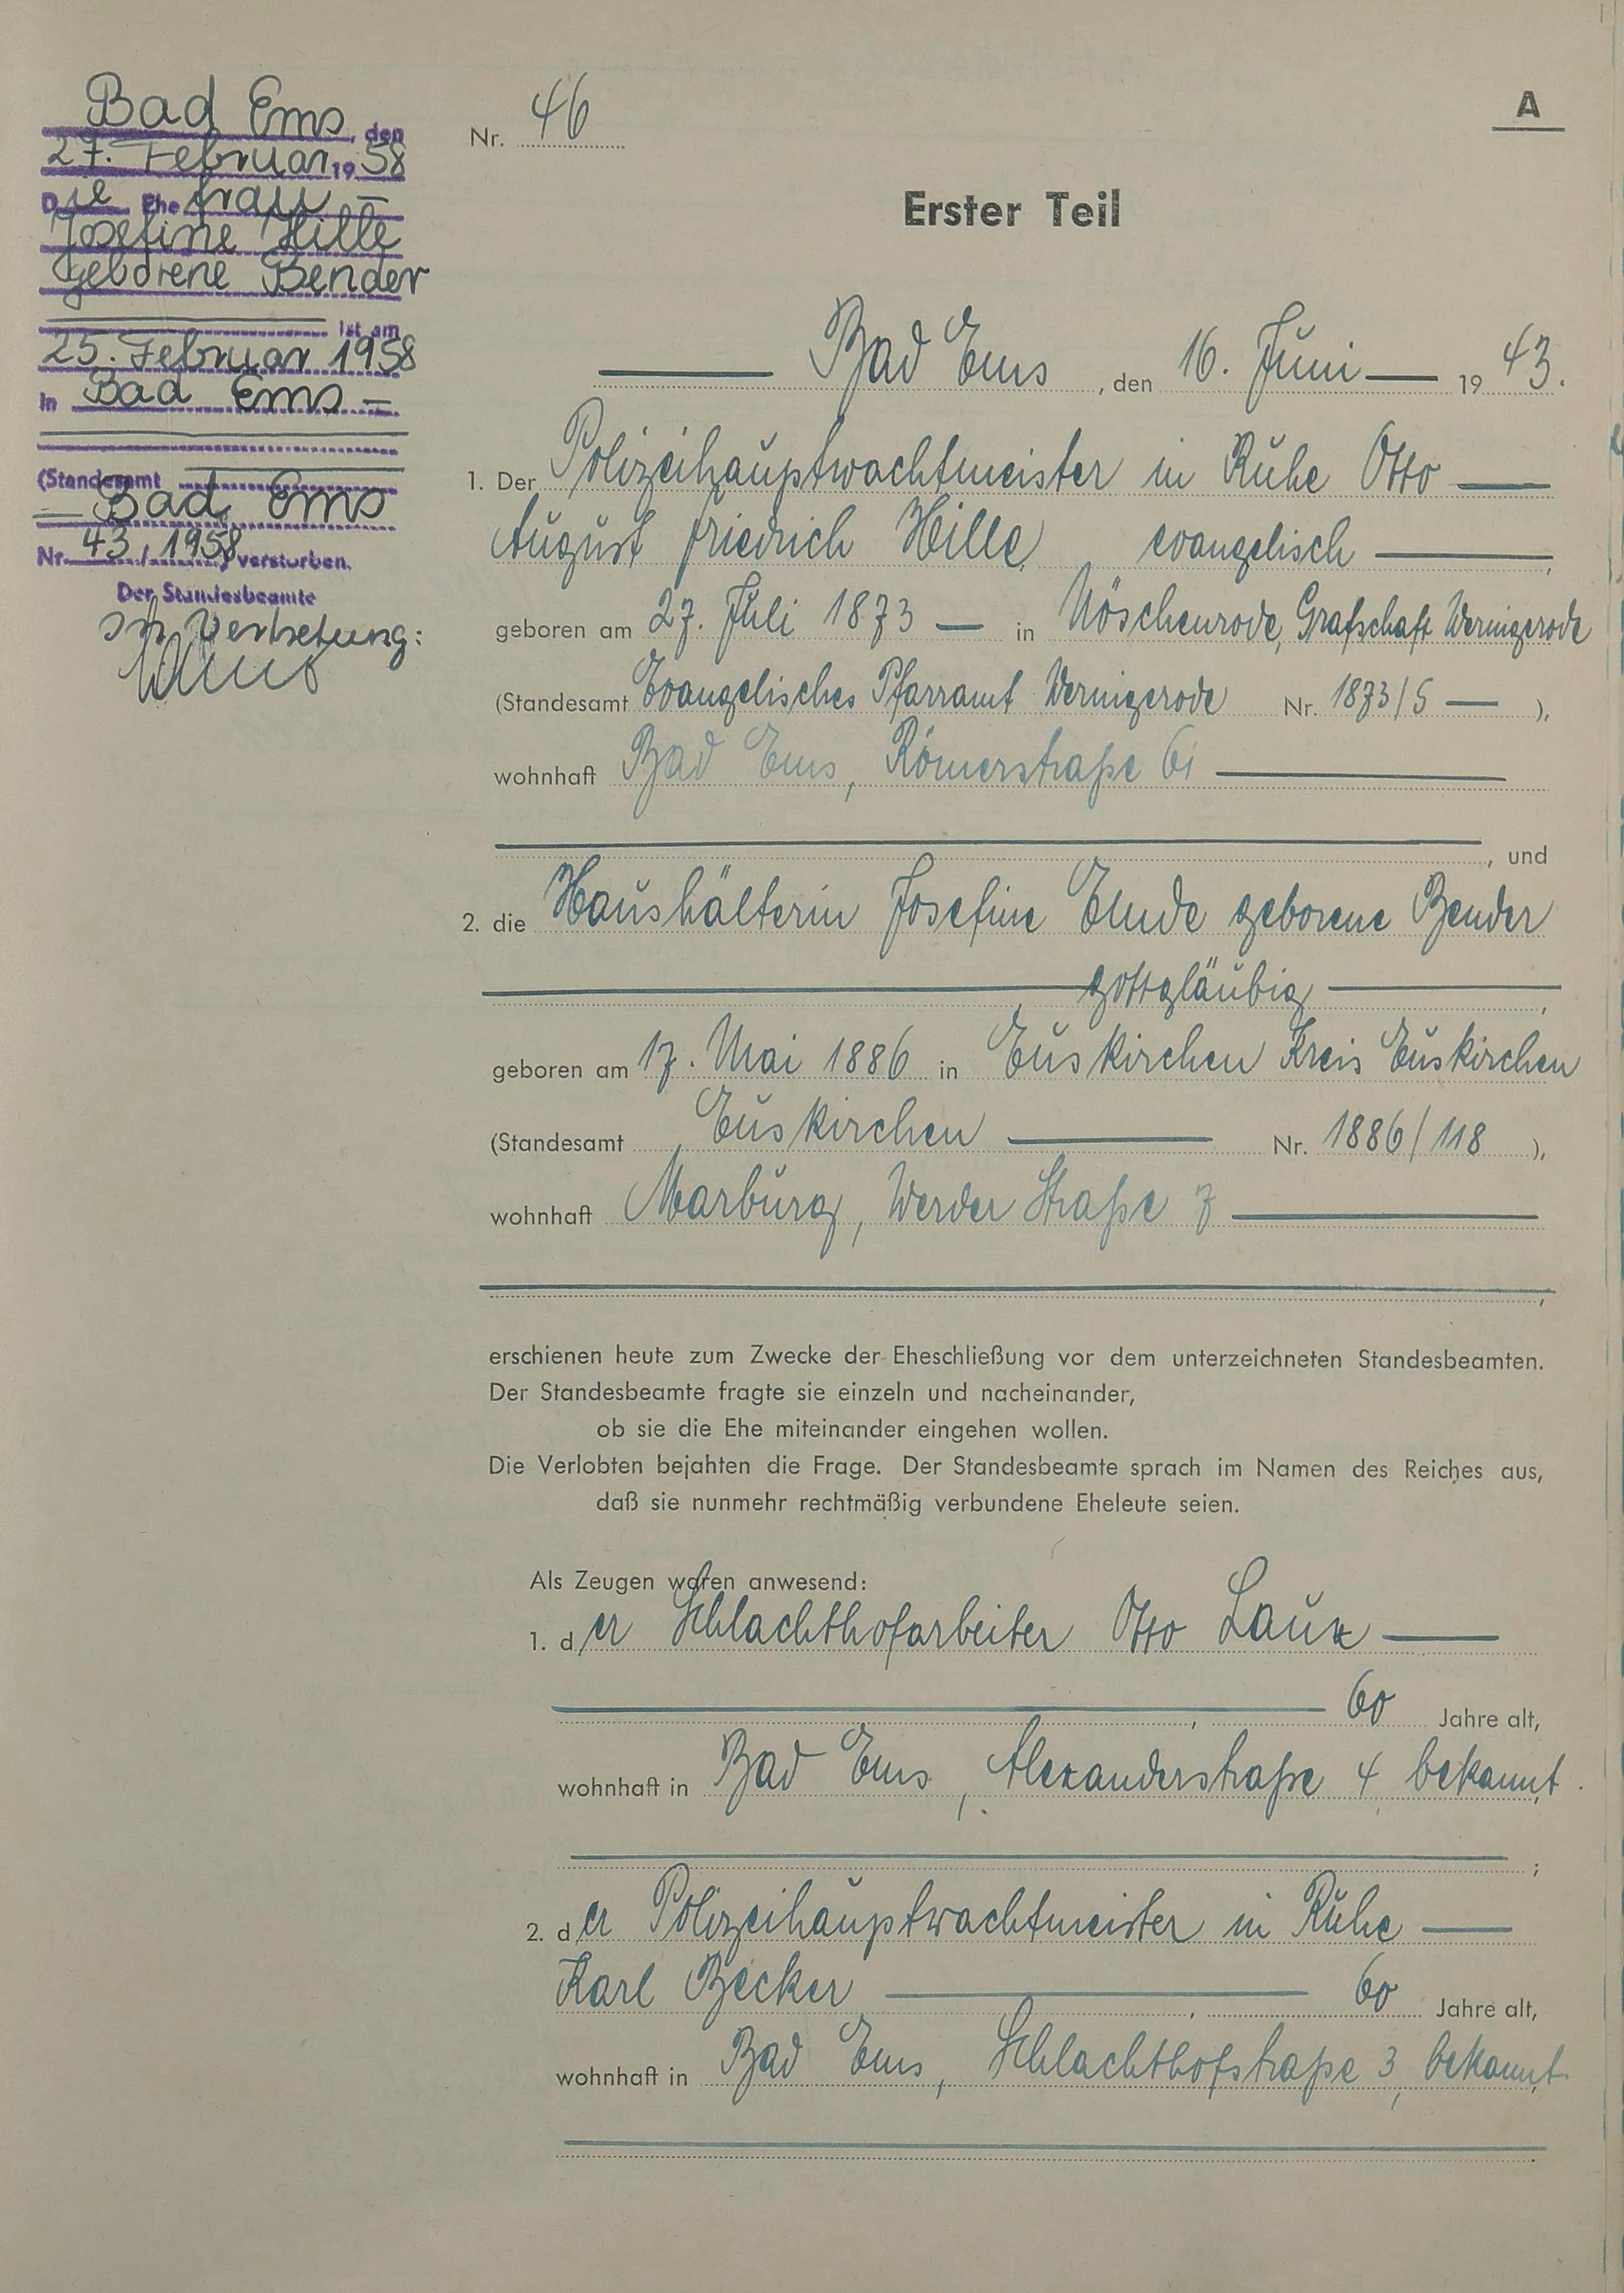 Bad Ems, den
27. Februar 1958
Die Ehefrau —
Josefine Hille
geborene Bender
ist am
25. Februar 1958
in Bad Ems —
(Standesamt
— Bad Ems
Nr. 43 / 1958) verstorben.
Der Standesbeamte
In Vertretung:
A
Nr. 46
Erster Teil
— Bad Ems, den 16. Juni — 1943.
1. Der Polizeihauptwachtmeister in Ruhe Otto —
August Friedrich Hille, evangelisch —,
geboren am 27. Juli 1873 — in Nöschenrode, Grafschaft Wernigerode
(Standesamt Evangelisches Pfarramt Wernigerode Nr. 1873/5 — ),
wohnhaft Bad Ems, Römerstraße 61 —
—, und
2. die Haushälterin Josefine Emde geborene Bender
— gottgläubig —,
geboren am 17. Mai 1886 in Euskirchen Kreis Euskirchen
(Standesamt Euskirchen — Nr. 1886/118 ),
wohnhaft Marburg, Werder Straße 7 —
—,
erschienen heute zum Zwecke der Eheschließung vor dem unterzeichneten Standesbeamten.
Der Standesbeamte fragte sie einzeln und nacheinander,
ob sie die Ehe miteinander eingehen wollen.
Die Verlobten bejahten die Frage. Der Standesbeamte sprach im Namen des Reiches aus,
daß sie nunmehr rechtmäßig verbundene Eheleute seien.
Als Zeugen waren anwesend:
1. der Schlachthofarbeiter Otto Laux —
—, 60 Jahre alt,
wohnhaft in Bad Ems, Alexanderstraße 4, bekannt
— ;
2. der Polizeihauptwachtmeister in Ruhe —
Karl Becker —, 60 Jahre alt,
wohnhaft in Bad Ems, Schlachthofstraße 3, bekannt
—.